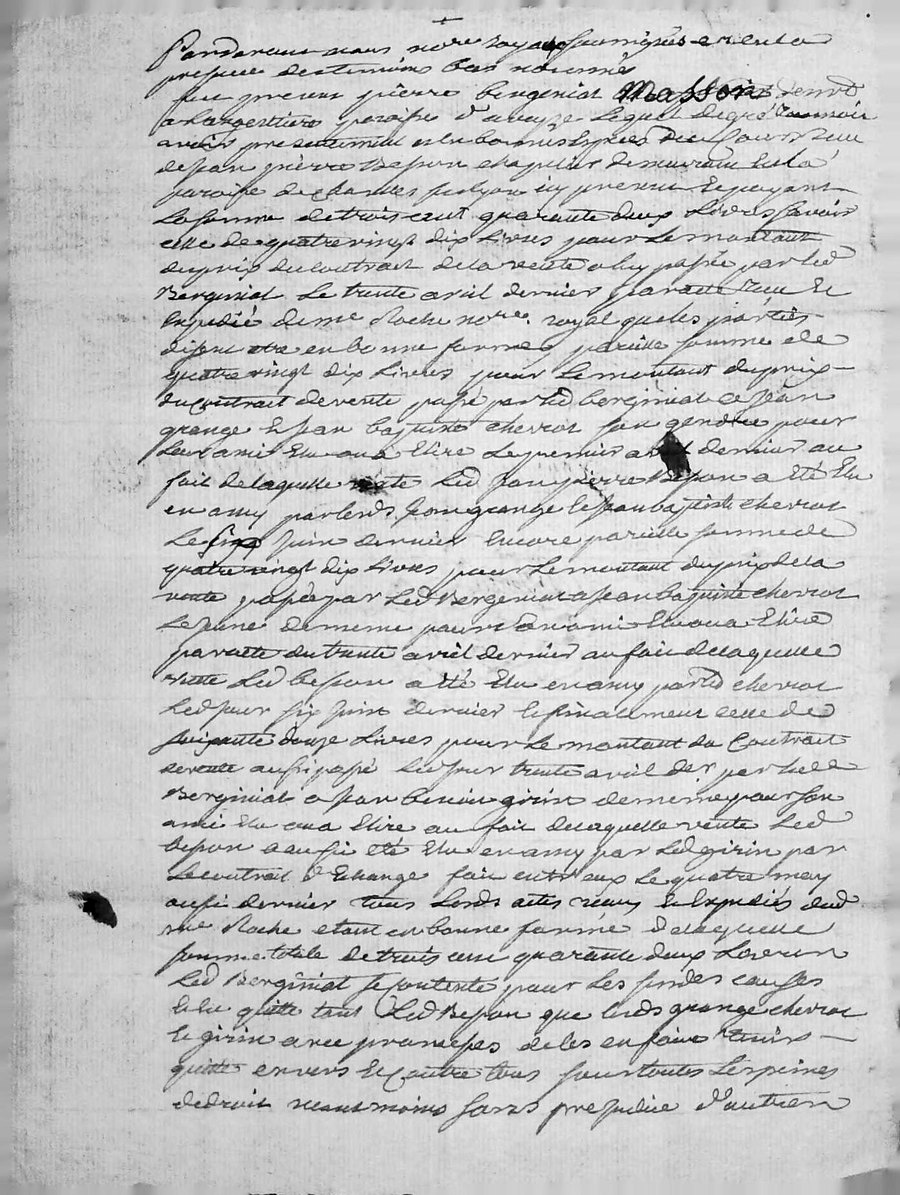 Pardevant nous no.re royal soussignés et en la
presence des temoins bas nommés
fut present pierre bergeniat Masson demt
a Largentiere paroisse d'aveyze Lequel de gré
avoir presentement en bonnes Especes du Cours Receu
de Jean pierre Besson chapelier demeurant En la
paroisse de icy present Et payant
La somme de trois cent quarante deux Livres Savoir
celle de quatre vingt dix Livres pour Le montant
du prix du Contrat de la vente a luy passée par led
Bergeniat Le trente avril dernier par acte Receu Et
Expedié de me Roche no.re royal que les parties
disent etre en bonne forme pareille somme de
quatre vingt dix Livres pour Le montant du prix
du Contrat de vente passé par led bergeniat a Jean
grange Et Jean baptiste chevrot son gendre pour
Leur ami Elu ou a Elire Le premier dernier au
fait de laquelle vente Led Jean pierre Besson a été Elu
en amy par lesds Jean grange Et Jean baptiste chevrot
Le Six Juin dernier Encore pareille somme de
quatre vingt dix Livres pour Le montant du prix de la
vente passée par Led Bergeniat a Jean baptiste chevrot
Le Jeune de meme pour Son ami Elu ou a Elire
par acte du trente avril dernier au fait de laquelle
vente Led besson a été Elu en amy par led chevrot
Led Jour six Juin dernier Et finalement celle de
soixante douze Livres pour Le montant du Contrat
de vente aussi passé Led Jour trente avril der par led
Bergeniat a Jean girin de meme pour son
ami Elu ou a Elire au fait de laquelle vente Led
besson a aussi été Elu en amy par Led girin par
Le contrat d'Echange fait entr'eux Le quatre may
aussi dernier tous Lesds actes receus Et Expediés dud
me Roche etant en bonne forme De laquelle
somme totale de trois cent quarante deux Livres
Led Bergeniat Se contente pour Les susdes causes
Et en quitte tant Led Besson que lesds grange chevrot
Et girin avec promesses de les en faire Tenir
quitte envers Et Contre tous sous toutes Les peines
de droit neant moins sans prejudice d'autres